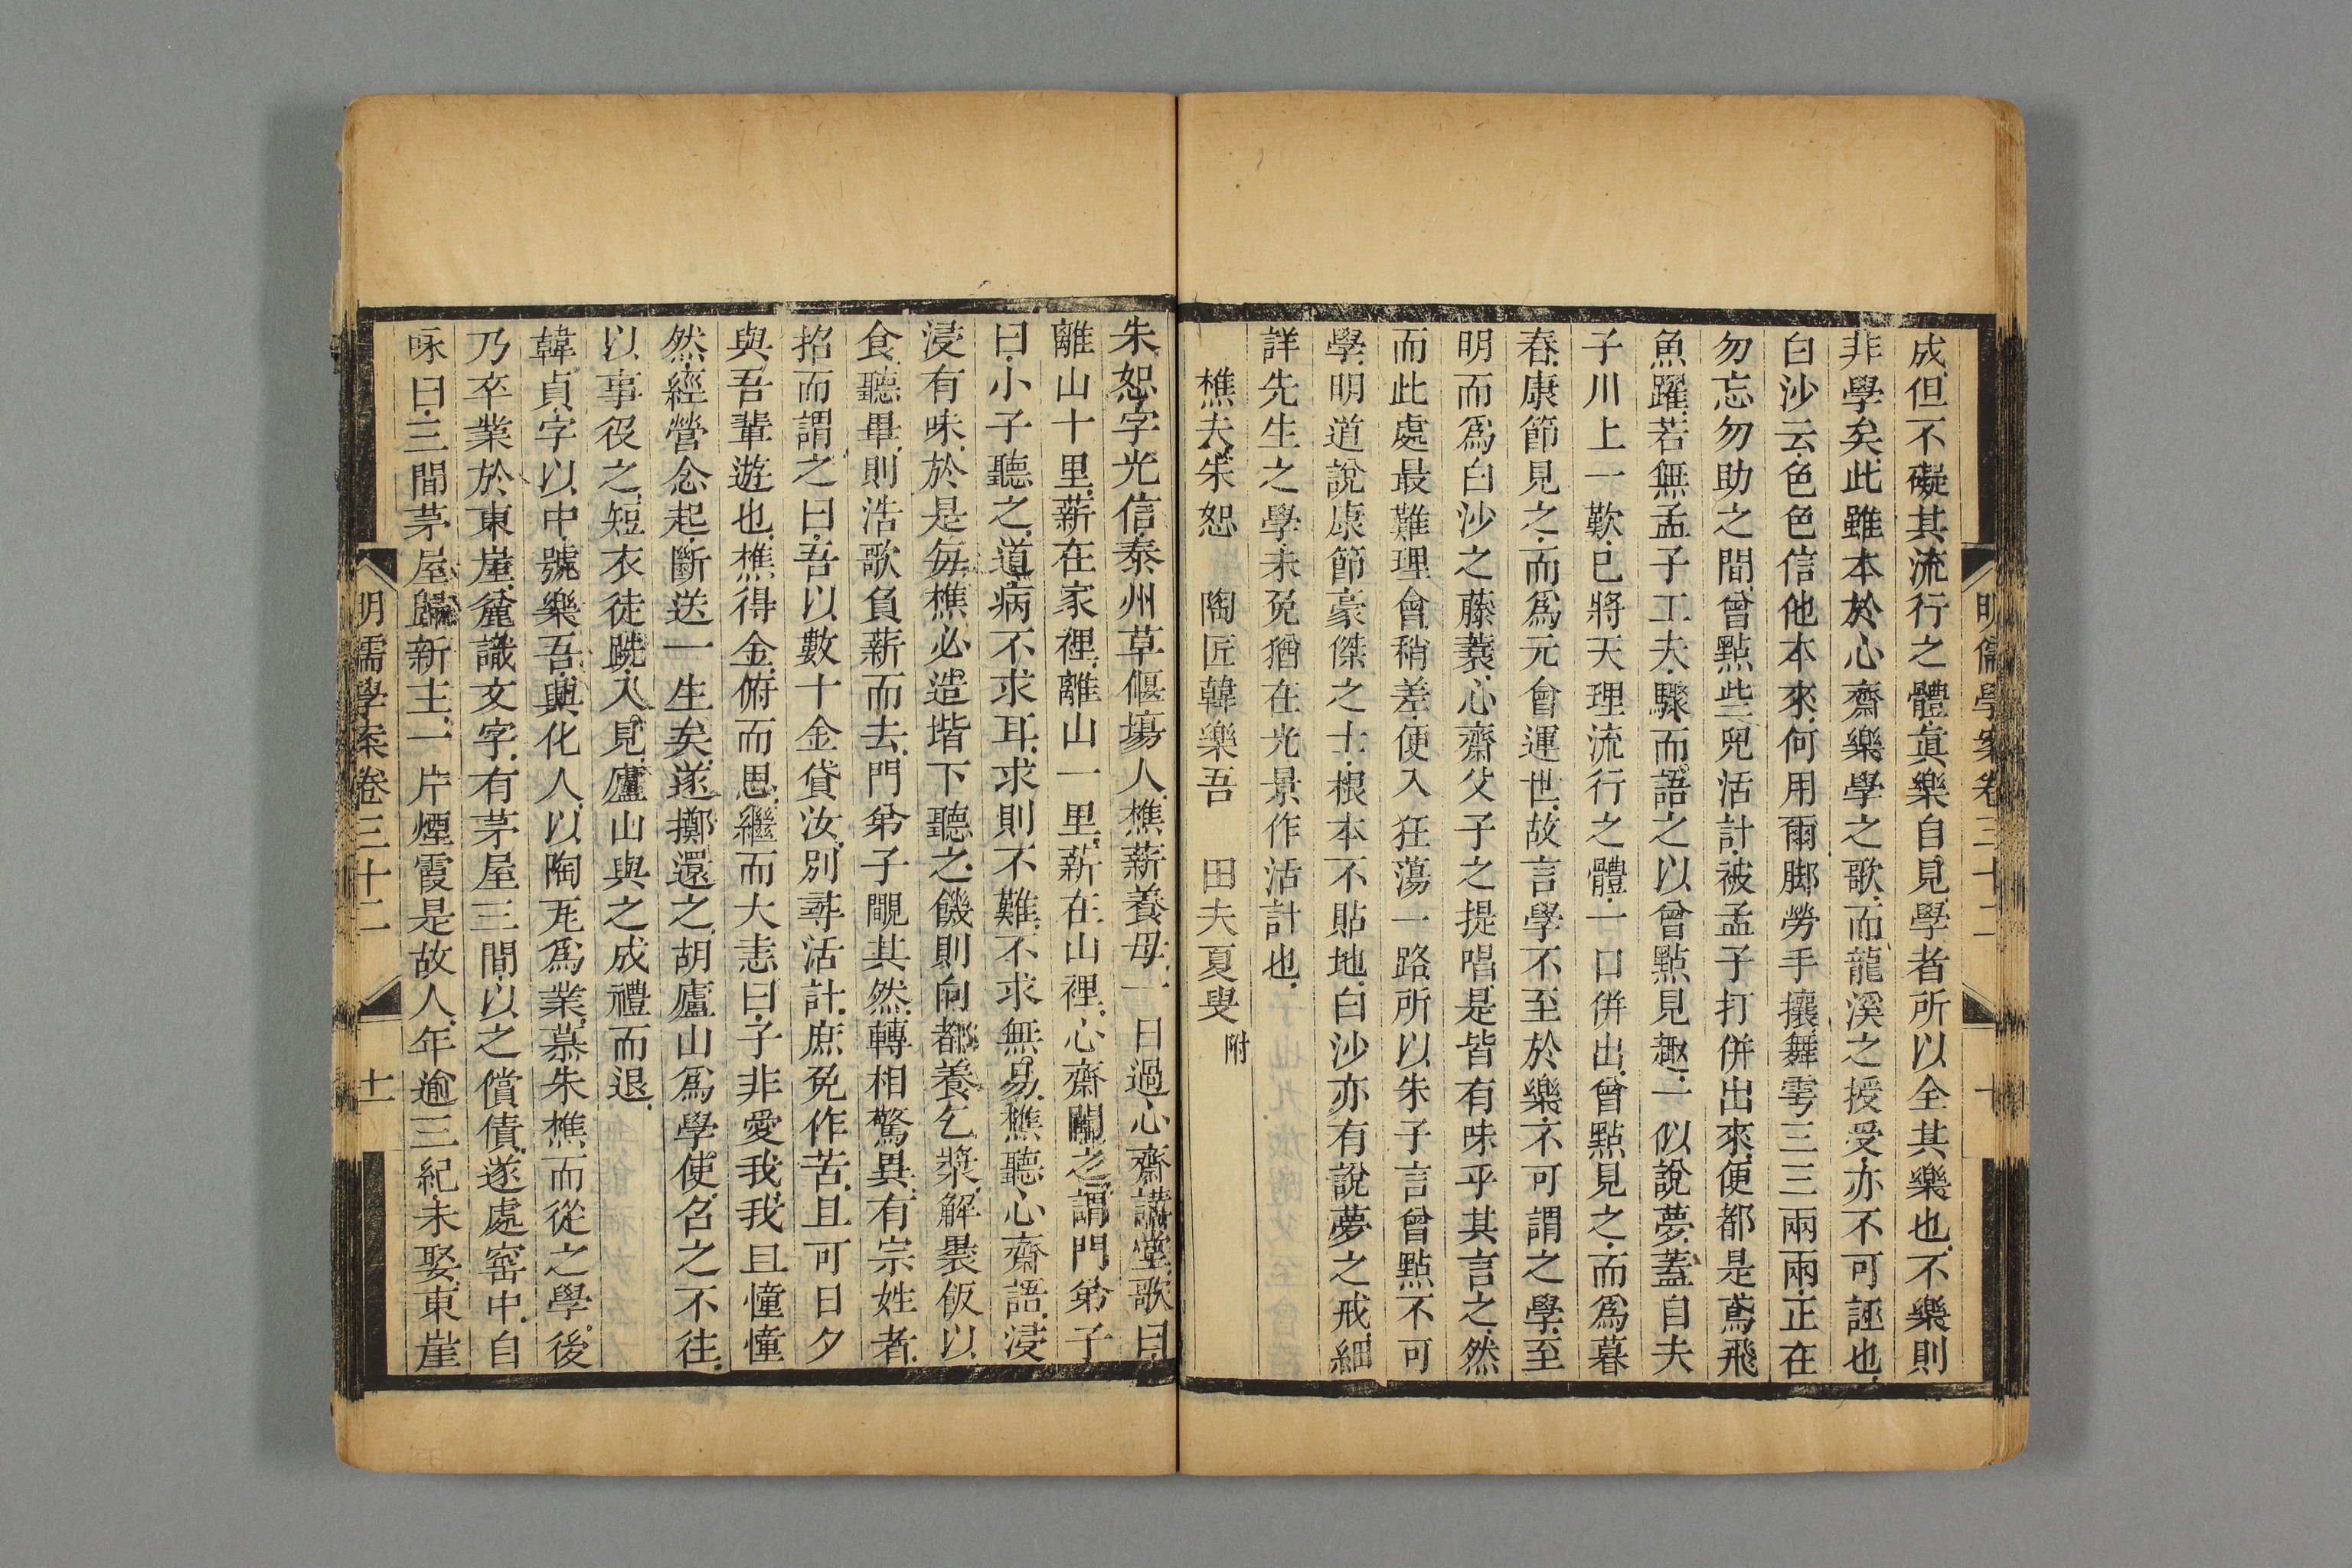 明儒學案卷三十二 十
成但不礙其流行之體眞樂自見學者所以全其樂也不樂則
非學矣此雖本於心齋樂學之歌而龍溪之授受亦不可誣也
白沙云色色信他本來何用爾脚勞手攘舞雩三三兩兩正在
勿忘勿助之間曾點些兒活計被孟子打併出來便都是鳶飛
魚躍若無孟子工夫驟而語之以曾點見趣一似說夢蓋自夫
子川上一歎已將天理流行之體一口併出曾點見之而爲暮
春康節見之而爲元會運世故言學不至於樂不可謂之學至
明而爲白沙之藤蓑心齋父子之提唱是皆有味乎其言之然
而此處最難理會稍差便入狂蕩一路所以朱子言曾點不可
學明道說康節豪傑之士根本不貼地白沙亦有說夢之戒細
詳先生之學未免猶在光景作活計也
樵夫朱恕 陶匠韓樂吾 田夫夏叟附
朱恕字光信泰州草偃塲人樵薪養母一日過心齋講堂歌曰
離山十里薪在家裡離山一里薪在山裡心齋聞之謂門弟子
曰小子聽之道病不求耳求則不難不求無易樵聽心齋語浸
浸有味於是毎樵必造堦下聽之饑則向都養乞漿解裹飯以
食聽畢則浩歌負薪而去門弟子覸其然轉相驚異有宗姓者
招而謂之曰吾以數十金貸汝別尋活計庶免作苦且可日夕
與吾輩遊也樵得金俯而思繼而大恚曰子非愛我我且憧憧
然經營念起斷送一生矣遂擲還之胡廬山爲學使召之不往
以事役之短衣徒跣入見廬山與之成禮而退
韓貞字以中號樂吾興化人以陶瓦爲業慕朱樵而從之學後
乃卒業於東崖麄識文字有茅屋三間以之償債遂處窑中自
咏曰三間茅屋歸新主一片煙霞是故人年逾三紀未娶東崖
明儒學案卷三十二 十一